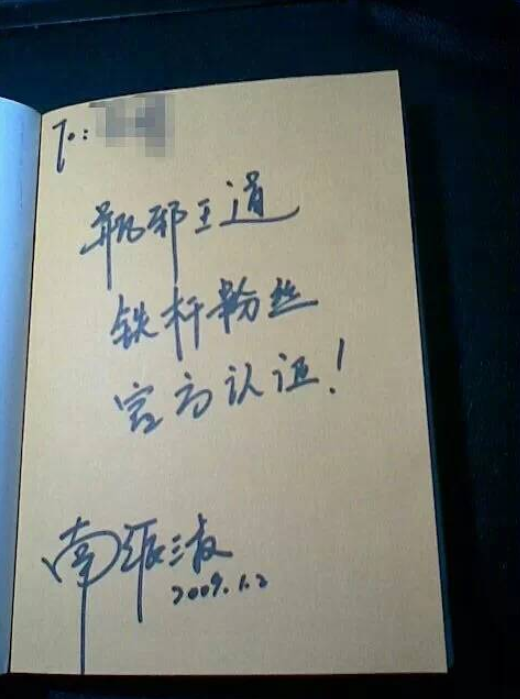 To:
瓶邪王道
铁杆粉丝
官方认证！
南派三叔
2009.1.2